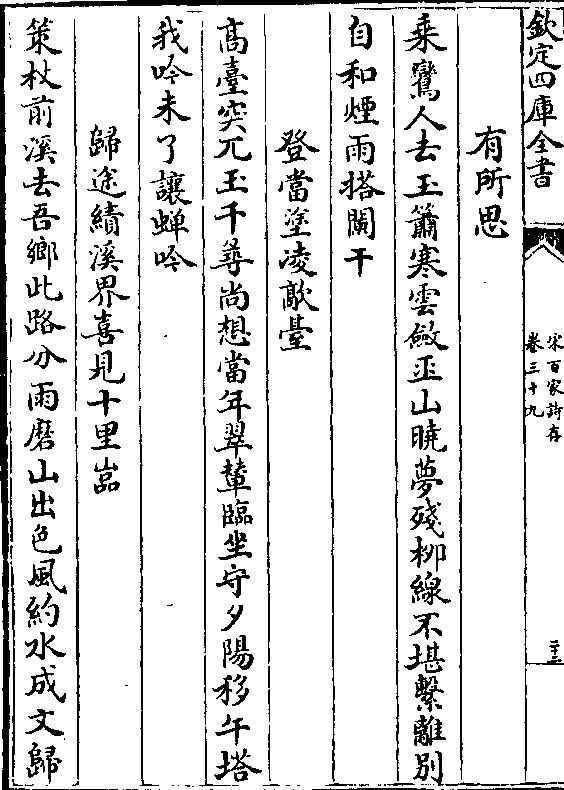 欽定四庫全書
宋百家詩存
卷三十九
二十二
有所思
乘鸞人去玉簫寒雲斂巫山曉夢殘柳線不堪繫離別
自和煙雨搭闌干
登當塗凌歊臺
高臺突兀玉千尋尚想當年翠輦臨坐守夕陽移午塔
我吟未了讓蟬吟
歸途績溪界喜見十里嵓
策杖前溪去吾鄉此路分雨磨山出色風約水成文歸